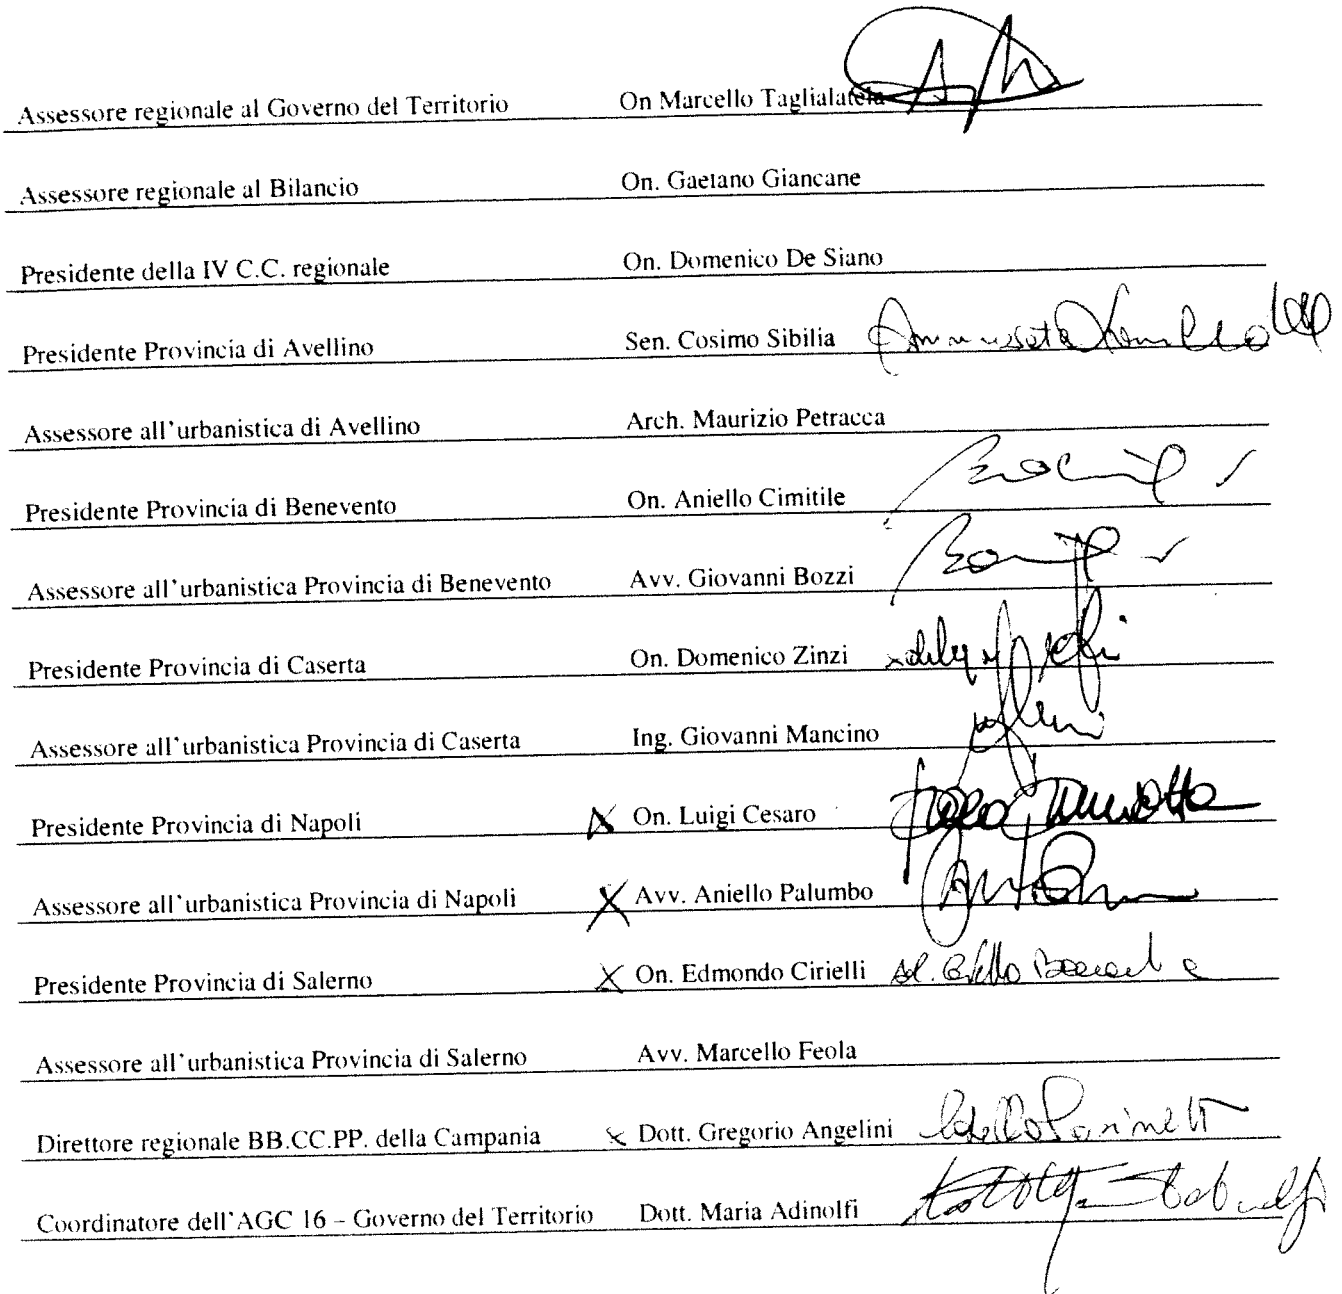 Assessore regionale al Governo del Territorio On Marcello Taglialatela
Assessore regionale al Bilancio On. Gaetano Giancane
Presidente della IV C.C. regionale On. Domenico De Siano
Presidente Provincia di Avellino Sen. Cosimo Sibilia
Assessore all'urbanistica di Avellino Arch. Maurizio Petracca
Presidente Provincia di Benevento On. Aniello Cimitile
Assessore all'urbanistica Provincia di Benevento Avv. Giovanni Bozzi
Presidente Provincia di Caserta On. Domenico Zinzi
Assessore all'urbanistica Provincia di Caserta Ing. Giovanni Mancino
Presidente Provincia di Napoli X On. Luigi Cesaro
Assessore all'urbanistica Provincia di Napoli X Avv. Aniello Palumbo
Presidente Provincia di Salerno X On. Edmondo Cirielli
Assessore all'urbanistica Provincia di Salerno Avv. Marcello Feola
Direttore regionale BB.CC.PP. della Campania x Dott. Gregorio Angelini
Coordinatore dell'AGC 16 – Governo del Territorio Dott. Maria Adinolfi